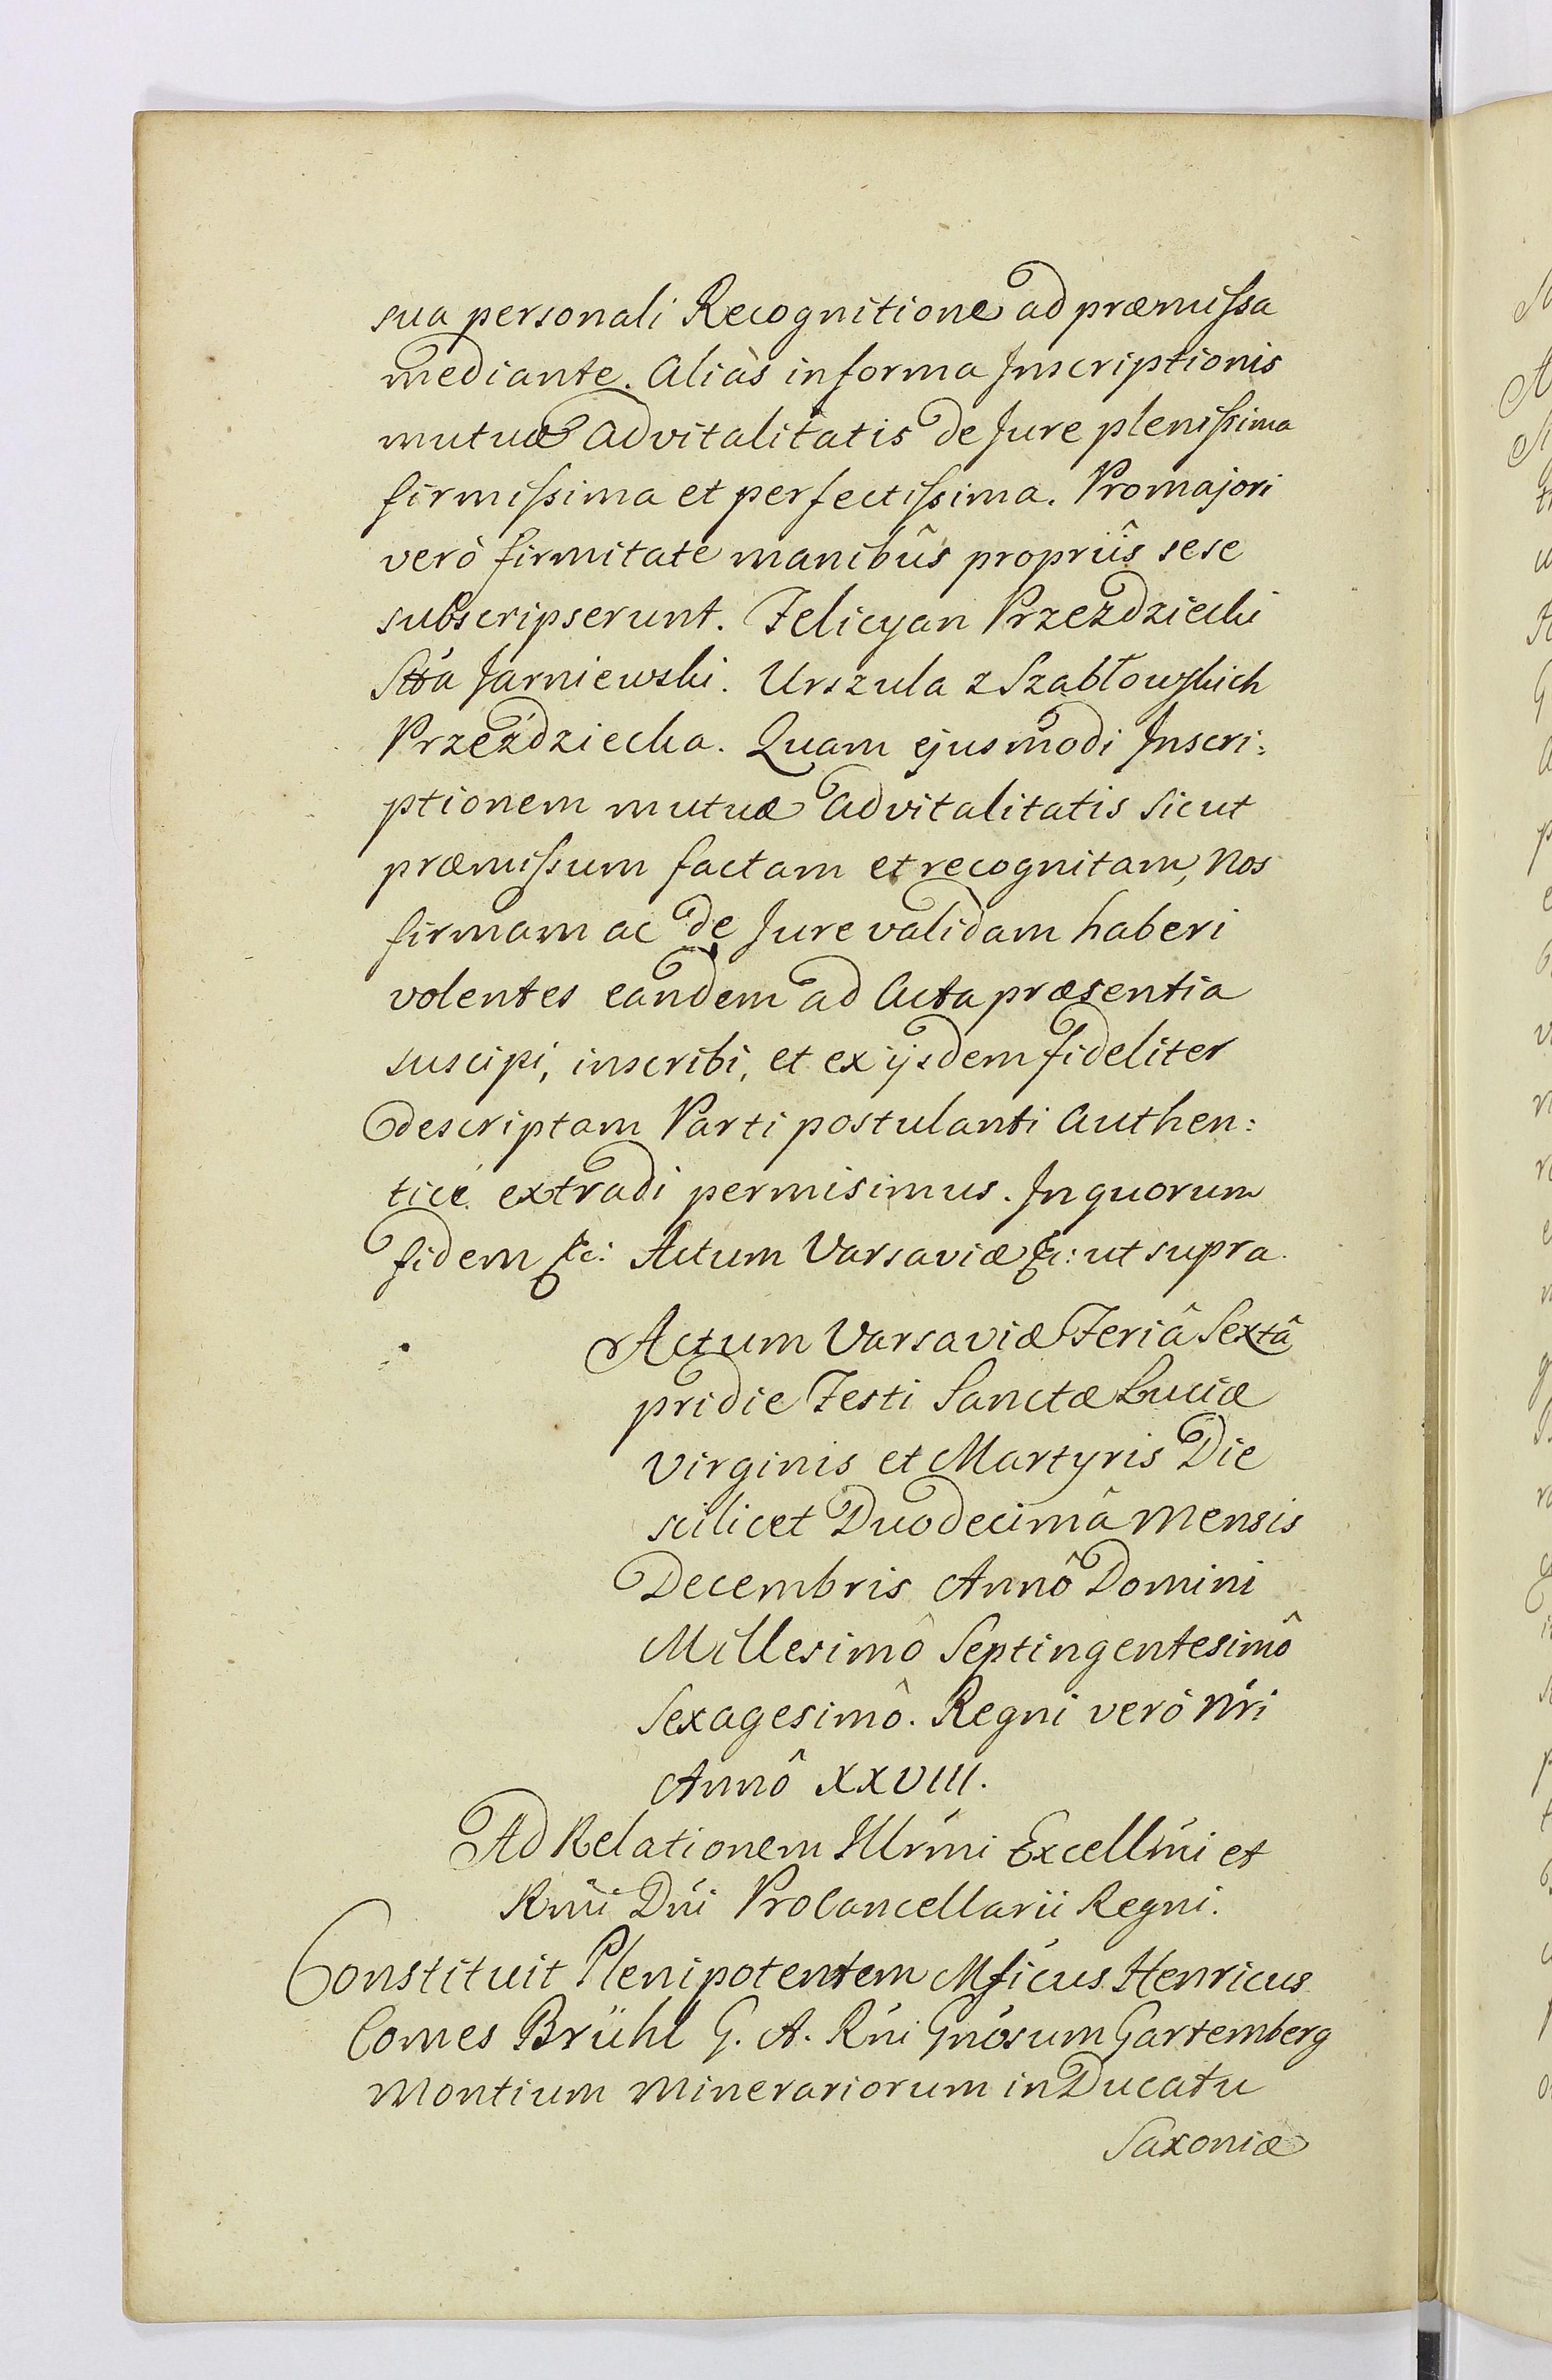 sua personali Recognitione ad præmissa
mediante. Aliàs in forma Inscriptionis
mutuæ Advitalitatis de Jure plenissima
firmissima et perfectissima. Pro majori
verò firmitate manibûs propriîs sese
subscripserunt. Felicyan Przezdziecki
Stta Jarniewski. Urszula z Szabłowskich
Przeździecka. Quam ejusmodi Inscri:
ptionem mutuæ Advitalitatis sicut
præmissum factam et recognitam, Nos
firmam ac de Jure validam haberi
volentes eandem ad Acta præsentia
suscipi, inscribi, et ex ijsdem fideliter
descriptam Parti postulanti Authen:
ticé extradi permisimus. In quorum
fidem &c: Actum Varsaviæ &c: ut supra.
Actum Varsaviæ Feriâ Sextâ
pridie Festi Sanctæ Luciæ
Virginis et Martyris Die
scilicet Duodecimâ Mensis
Decembris Annô Domini
Millesimô Septingentesimô
Sexagesimô. Regni verò Nri
Annô XXVIII.
Ad Relationem Illrmi Excellmi et
Rmi Dni ProCancellarii Regni.
Constituit Plenipotentem Mficus Henricus
Comes Brühl G. A. Rni Gnosum Gartemberg
Montium Minerariorum in Ducatu
Saxoniæ